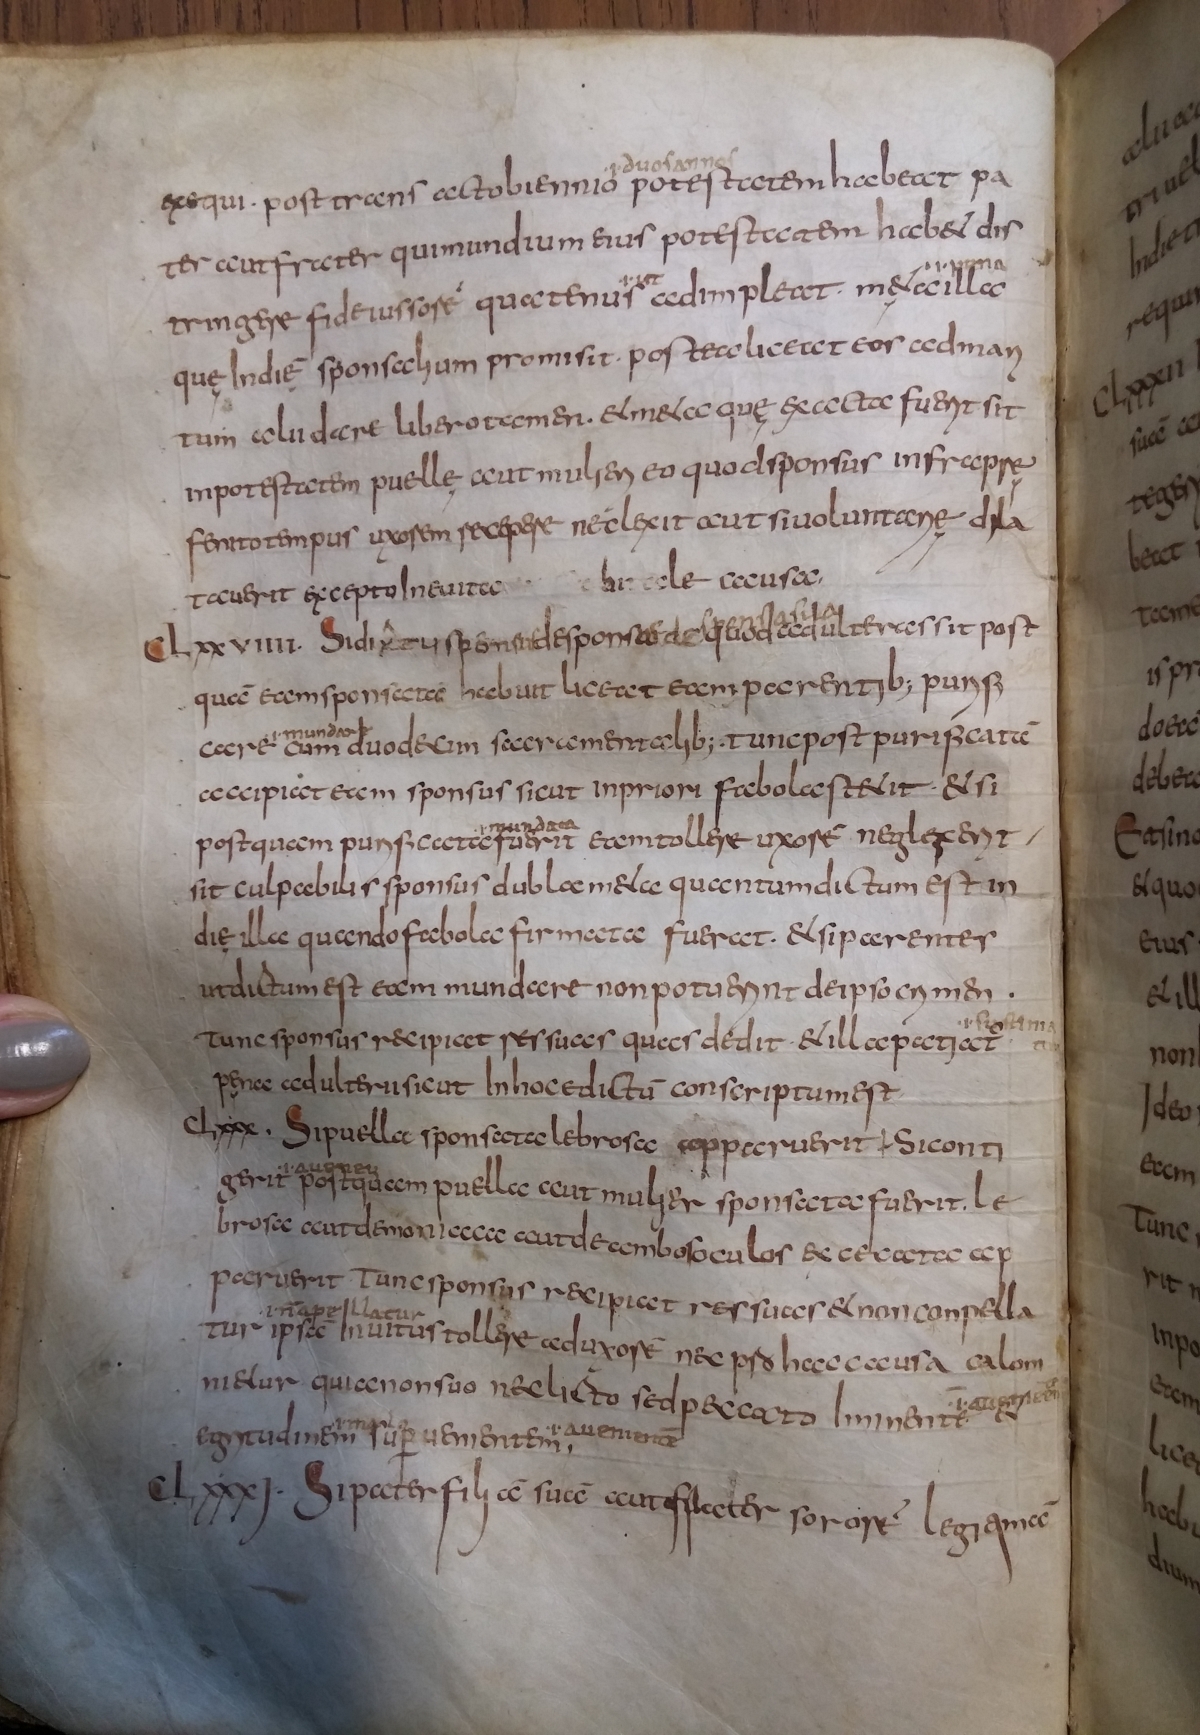 .i. duos annos
exsequi. post transactobiennio potestatem habeat pa
ter aut frater qui mundium eius potestatem habet dis
.i. ut .i. prima
tringere fideiussorē quatenus adimpleat. meta illa
quę In dię sponsalium promisit. postea liceat eos ad mari
tum alii dare libero tamen. et meta quę exacta fuerit sit
in potestatem puellę aut mulieri eo quod sponsus infra pre
fenito tempus uxorem recepere neclexit aut si voluntarię dila
tauerit excepto Ineuita bi le causa.
CLxxviiii. Si dixerit sponsus de sponsa quod adulterassit post
quā eam sponsatā habuit liceat eam parentib; purifi
.i. mundare
care cum duodecim sacramentalib;. tunc post purificatā
accipiat eam sponsus sicut in priori fabola stetit. et si
.i. mundata
postquam purificata fuerit eam tollere uxorē neglexerit
sit culpabilis sponsus dubla meta quantum dictum est in
dię illa quando fabola firmata fuerat. et si parentes
ut dictum est eam mundare non potuerint de ipso crimen.
tunc sponsus recipiat res suas quas dedit. et illa patiat
pęna adulterii sicut In hoc edictū conscriptum est
CLxxx. Si puella sponsata lebrosa apparuerit Si conti
gerit postquam puella aut mulier sponsata fuerit. le
brosa aut demoniaca aut de ambos oculos excecata ap
paruerit. Tunc sponsus recipiat res suas et non conpella
.i. nō apellatur
tur ipsā Inuitus tollere ad uxorē nec pro hac causa calom
nietur quia non suo neclicto sed peccato Iminente
egritudinem superuenientem.
CLxxxi. Si pater filiā suā aut frater sororē legitimā